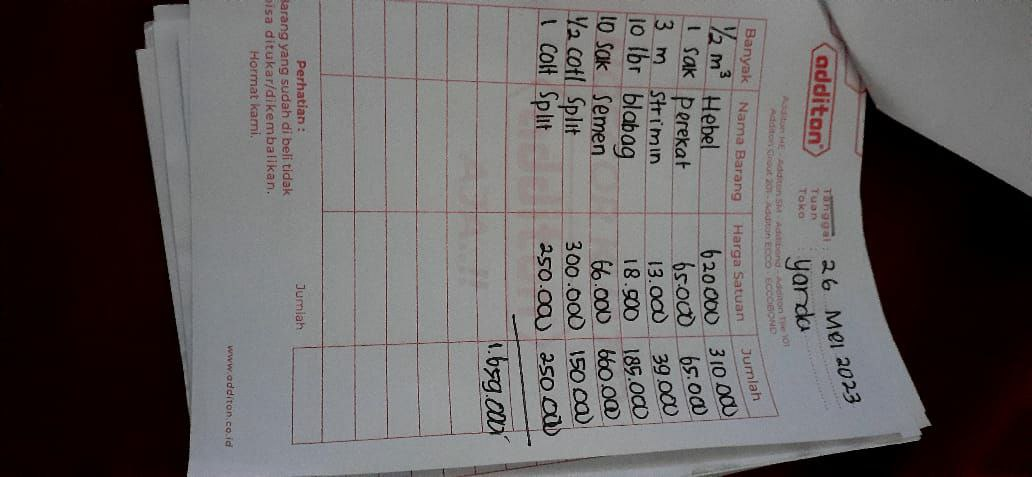 additon®
Additon HE - Additon SM - Additbond - Additon Tile 101
Additon Grout 201 - Additon ECCO - ECCOBOND
Tanggal : 26 MEI 2023
Tuan : yanda
Toko
Banyak Nama Barang Harga Satuan Jumlah
1/2 m³ Hebel 620.000 310.000
1 sak perekat 65.000 65.000
3 m strimin 13.000 39.000
10 lbr blabag 18.500 185.000
10 sak semen 66.000 660.000
1/2 cotl split 300.000 150.000
1 colt split 250.000 250.000
1.659.000
Jumlah
Perhatian :
Barang yang sudah di beli tidak
bisa ditukar/dikembalikan.
Hormat kami.
www.additon.co.id